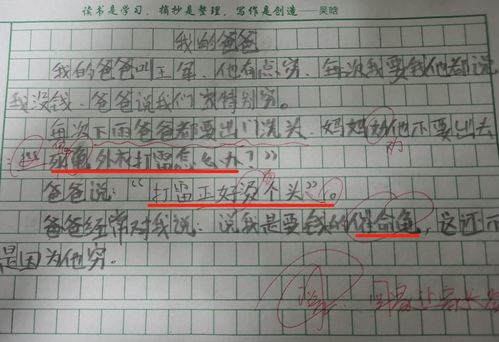 读书是学习，摘抄是整理，写作是创造——吴晗
我的爸爸
我的爸爸叫王军，他有点穷，每次我要钱他都说
我没钱，爸爸说我们家特别穷。
每次下雨爸爸都要出门洗头，妈妈 他不要出去
外在打雷怎么办？”
爸爸说：“打雷正好 个头”。
爸爸经常对我说：说我是要钱的催命鬼，这还不
是因为他穷。